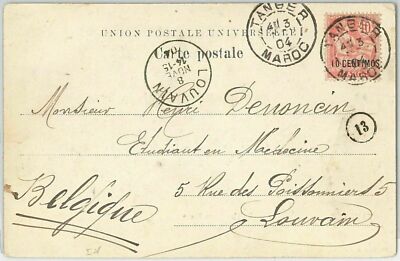 UNION POSTALE UNIVERSELLE
Carte postale
TANGER
04
MAROC
TANGER
MAROC
10 CENTIMOS
LOUVAIN
8
NOV
Monsieur Henri Denoncin
Etudiant en Médecine
13
5 Rue des Poissonniers 5
Belgique
Louvain